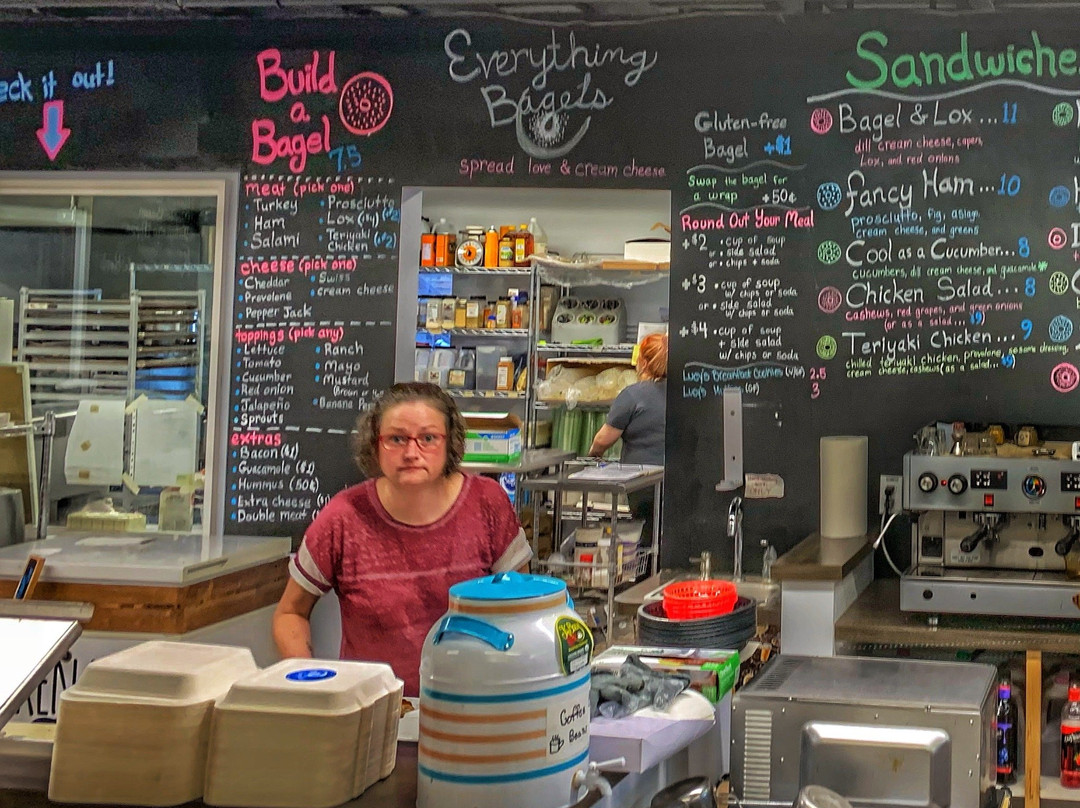 eck it out!
Build
a
Bagel
7.5
meat (pick one)
Turkey
Ham
Salami
Prosciutto
Lox (1/4) (+$2)
Teriyaki
Chicken (+$2)
cheese (pick one)
Cheddar
Provolone
Pepper Jack
Swiss
cream cheese
toppings (pick any)
Lettuce
Tomato
Cucumber
Red onion
Jalapeño
Sprouts
Ranch
Mayo
Mustard
Banana
extras
Bacon ($1)
Guacamole ($1)
Hummus (50¢)
Extra cheese
Double meat
Everything
Bagels
spread love & cream cheese
Gluten-free
Bagel +$1
Swap the bagel for
a wrap +50¢
Round Out Your Meal
+$2 • cup of soup
or • side salad
or • chips + soda
+$3 • cup of soup
w/ chips or soda
or • side salad
w/ chips or soda
+$4 • cup of soup
+ side salad
w/ chips or soda
2.5
3
Sandwiche
Bagel & Lox ... 11
dill cream cheese, capers,
Lox, and red onions
Fancy Ham ... 10
prosciutto, fig, asiago
cream cheese, and greens
Cool as a Cucumber... 8
cucumbers, dill cream cheese, and guacamole
Chicken Salad... 8
Cashews, red grapes, and green onions
(or as a salad... 9)
Teriyaki Chicken... 9
chilled teriyaki chicken, provolone, sesame dressing,
cream cheese, cashews (as a salad...
Coffee
Bean
ONLY